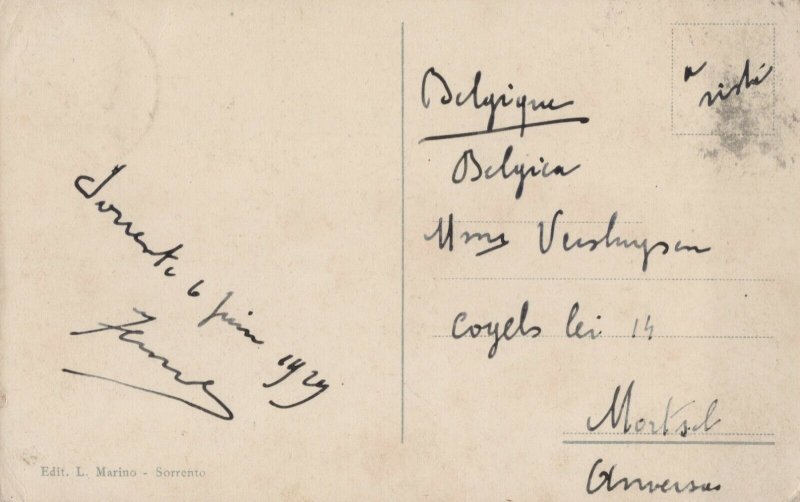 Sorrento 6 juin 1929
Edit. L. Marino - Sorrento
Belgique
Belgica
Mme
Cogels lei 14
Mortsel
Anversas